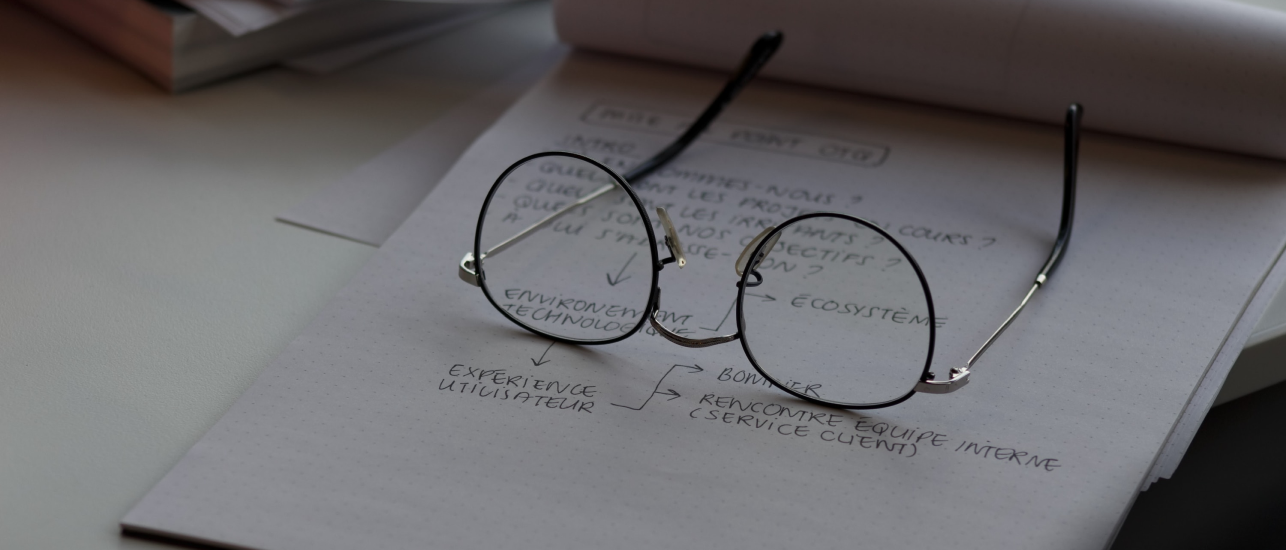 POINT
INTRO
SOMMES-NOUS ?
QUELS SONT LES PROJETS EN COURS ?
QUELS SONT LES IRRITANTS ?
QUELS SONT NOS OBJECTIFS ?
À QUI S'ADRESSE-T-ON ?
ENVIRONEMENT
TECHNOLOGIQUE
ÉCOSYSTÈME
EXPÉRIENCE
UTILISATEUR
BONIFIER
RENCONTRE ÉQUIPE INTERNE
(SERVICE CLIENT)